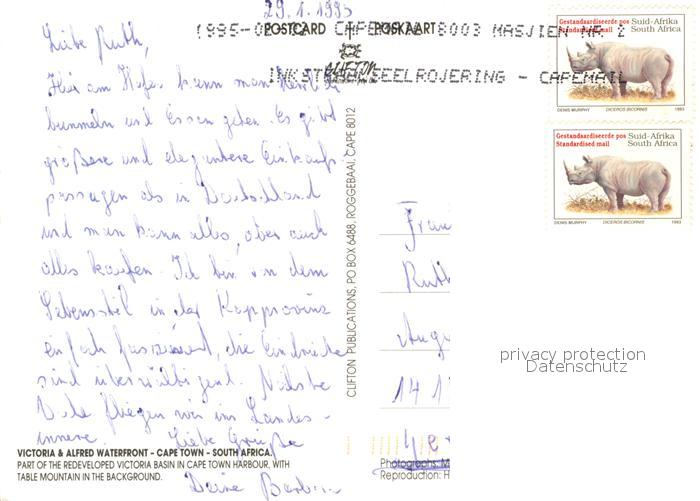 29.1.1995
Liebe Ruth,
Hier am Hafen kann man herrlich
bummeln und Essen gehen. Es gibt
größere und elegantere Einkaufs-
passagen als in Deutschland
und man kann alles, aber auch
alles kaufen. Ich bin von dem
Lebensstil in der Kapprovinz
einfach fasziniert, die Eindrücke
sind überwältigend. Nächste
Woche fliegen wir ins Landes-
innere. Liebe Grüße
Deine
VICTORIA & ALFRED WATERFRONT - CAPE TOWN - SOUTH AFRICA.
PART OF THE REDEVELOPED VICTORIA BASIN IN CAPE TOWN HARBOUR, WITH
TABLE MOUNTAIN IN THE BACKGROUND.
POSTCARD POSKAART
CLIFTON
CLIFTON PUBLICATIONS, PO BOX 6488, ROGGEBAAI, CAPE 8012
1995 8003 MASJIEN NR 2
- CAPEMAIL
Gestandaardiseerde pos Suid-Afrika
Standardised mail South Africa
DENIS MURPHY DICEROS BICORNIS 1993
Gestandaardiseerde pos Suid-Afrika
Standardised mail South Africa
DENIS MURPHY DICEROS BICORNIS 1993
Frau
Ruth
14 1
privacy protection
Datenschutz
Photographs: M
Reproduction: H